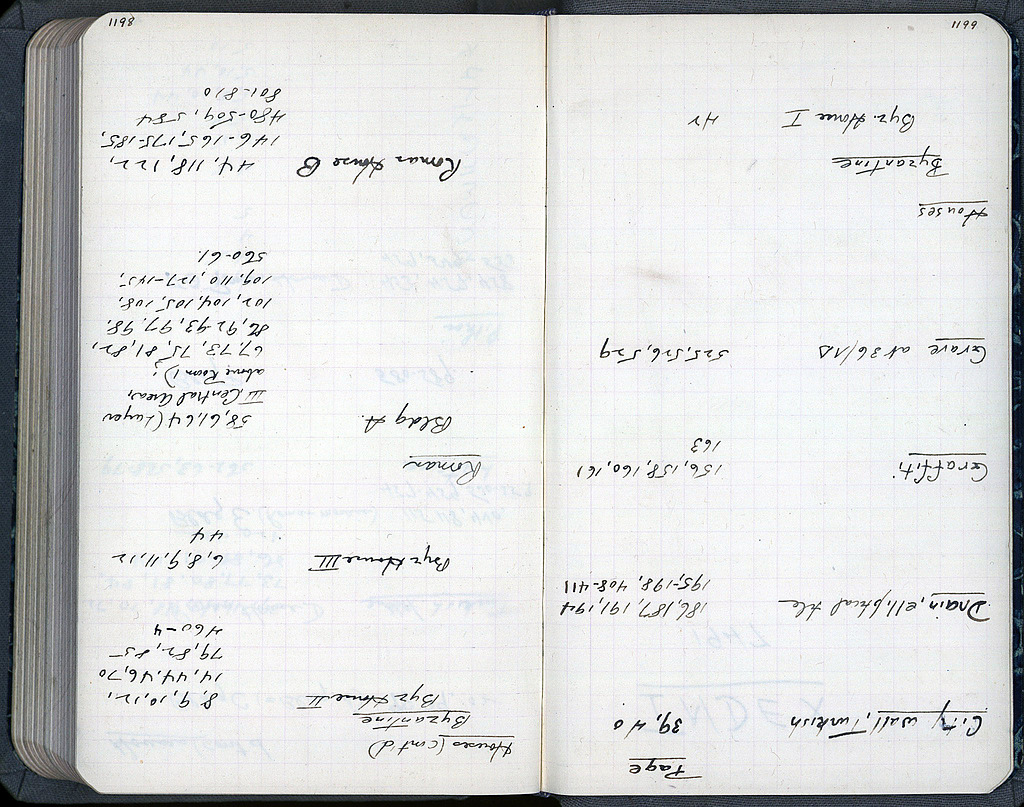 Page
City wall, Turkish 39, 40
Drain, elliptical tile 186, 187, 191, 194
195-198, 408-411
Graffiti 156, 158, 160, 161
163
Grave at 36/ΛΔ 525, 526, 529
Houses
Byzantine
Byz. House I 42
1199
Houses (cont'd)
Byzantine
Byz House II 8, 9, 10, 12,
14, 44, 46, 70
79, 82, 85
460-4
Byz House III 6, 8, 9, 11, 12
44
Roman
Bldg A. 58, 61, 64 (Layer
III Central Area,
above Room 1);
67, 73, 75, 81, 82,
86, 92-93, 97, 98,
102, 104, 105, 108,
109, 110, 127-145,
560-61.
Roman House B 44, 118, 122,
146-165, 175-185,
480-509, 584
801-810
1198